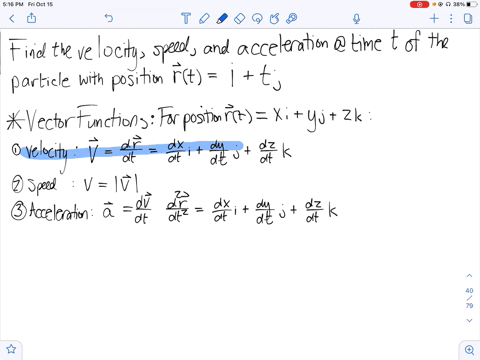 5:16 PM Fri Oct 15
38%
Find the velocity, speed, and acceleration @ time t of the
particle with position r⃗(t) = i + tj
*Vector Functions: For position r⃗(t) = xi + yj + zk:
① Velocity: V⃗ = dr⃗/dt = dx/dt i + dy/dt j + dz/dt k
② Speed : V = |V⃗|
③ Acceleration: a⃗ = dv⃗/dt d²r⃗/dt² = dx/dt i + dy/dt j + dz/dt k
40
/
79